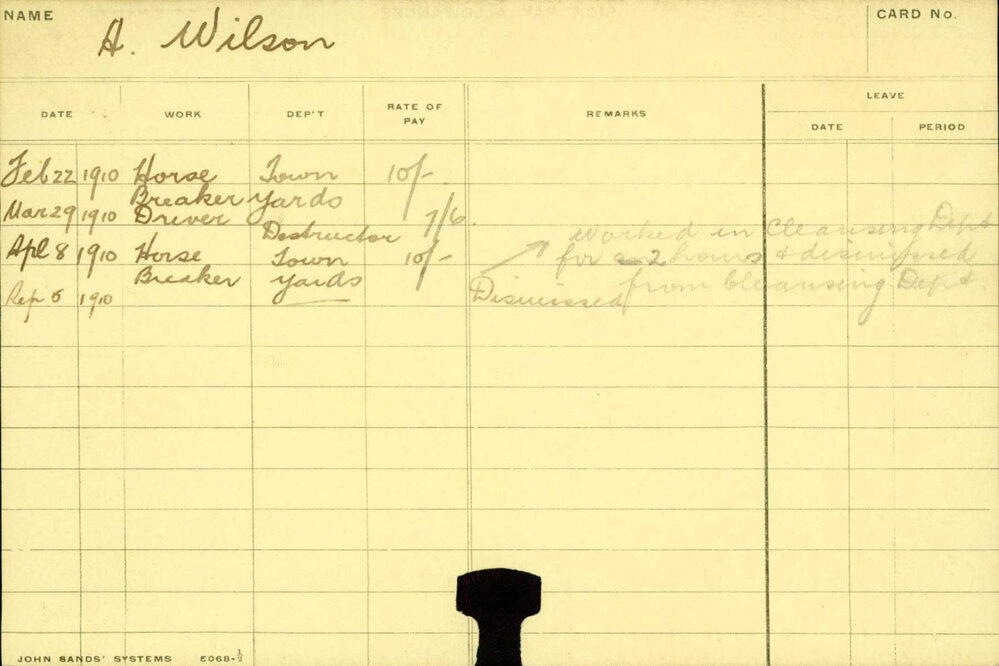 NAME
A. Wilson
CARD No.
DATE WORK DEP'T RATE OF PAY REMARKS LEAVE
DATE PERIOD
Feb 22 1910 Horse Town 10/-
Breaker Yards
Mar 29 1910 Driver Destructor 7/6
Apl 8 1910 Horse Town 10/-
Breaker Yards
1910 Dismissed
Worked in Cleansing Dept
for 2 hours & dismissed
from Cleansing Dept.
JOHN SANDS' SYSTEMS 5068-½